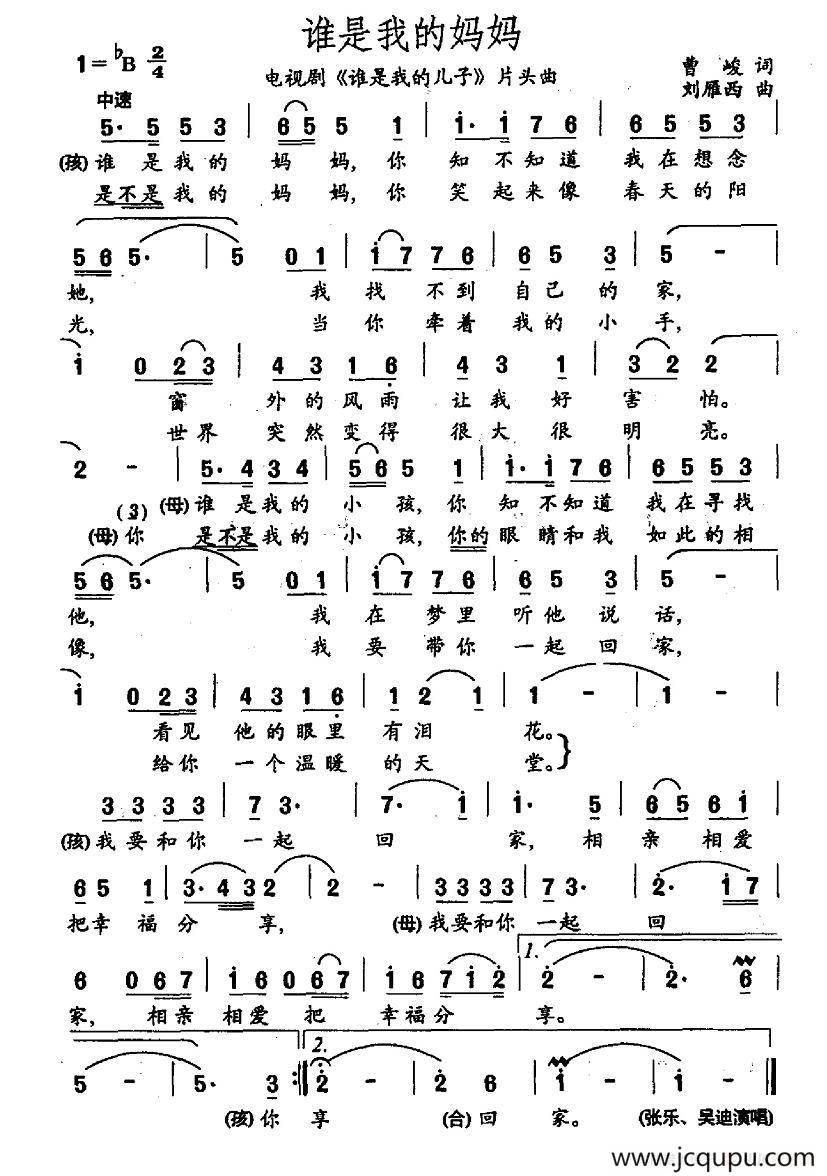 谁是我的妈妈
1=♭B 2/4
电视剧《谁是我的儿子》片头曲
曹峻 词
刘雁西 曲
中速
5· 5 5 3 | 6 5 5 1 | i· i 7 6 | 6 5 5 3 |
(孩)谁 是 我 的 妈 妈, 你 知 不 知 道 我 在 想 念
是不是 我 的 妈 妈, 你 笑 起 来 像 春 天 的 阳
5 6 5· | 5 0 1 | i 7 7 6 | 6 5 3 | 5 - |
她, 我 找 不 到 自 己 的 家,
光, 当 你 牵 着 我 的 小 手,
i 0 2 3 | 4 3 1 6 | 4 3 1 | 3 2 2 |
窗 外 的 风 雨 让 我 好 害 怕。
世 界 突 然 变 得 很 大 很 明 亮。
2 - | 5· 4 3 4 | 5 6 5 1 | i· i 7 6 | 6 5 5 3 |
(3) (母)谁 是 我 的 小 孩, 你 知 不 知 道 我 在 寻 找
(母)你 是不是 我 的 小 孩, 你的 眼 睛 和 我 如 此 的 相
5 6 5· | 5 0 1 | i 7 7 6 | 6 5 3 | 5 - |
他, 我 在 梦 里 听 他 说 话,
像, 我 要 带 你 一 起 回 家,
i 0 2 3 | 4 3 1 6 | 1 2 1 | 1 - | 1 - |
看 见 他 的 眼 里 有 泪 花。
给 你 一 个 温 暖 的 天 堂。}
3 3 3 3 | 7 3· | 7· i | i· 5 | 6 5 6 i |
(孩)我 要 和 你 一 起 回 家, 相 亲 相 爱
6 5 1 | 3· 4 3 2 | 2 - | 3 3 3 3 | 7 3· | 2· i 7 |
把 幸 福 分 享, (母)我 要 和 你 一 起 回
6 0 6 7 | i 6 0 6 7 | i 6 7 i 2 | 1. 2 - | 2· 6 |
家, 相 亲 相 爱 把 幸 福 分 享。
5 - | 5· 3 :| 2. 2 - | 2 6 | i - | i - |
(孩)你 享 (合)回 家。 (张乐、吴迪演唱)
www.jcqupu.com